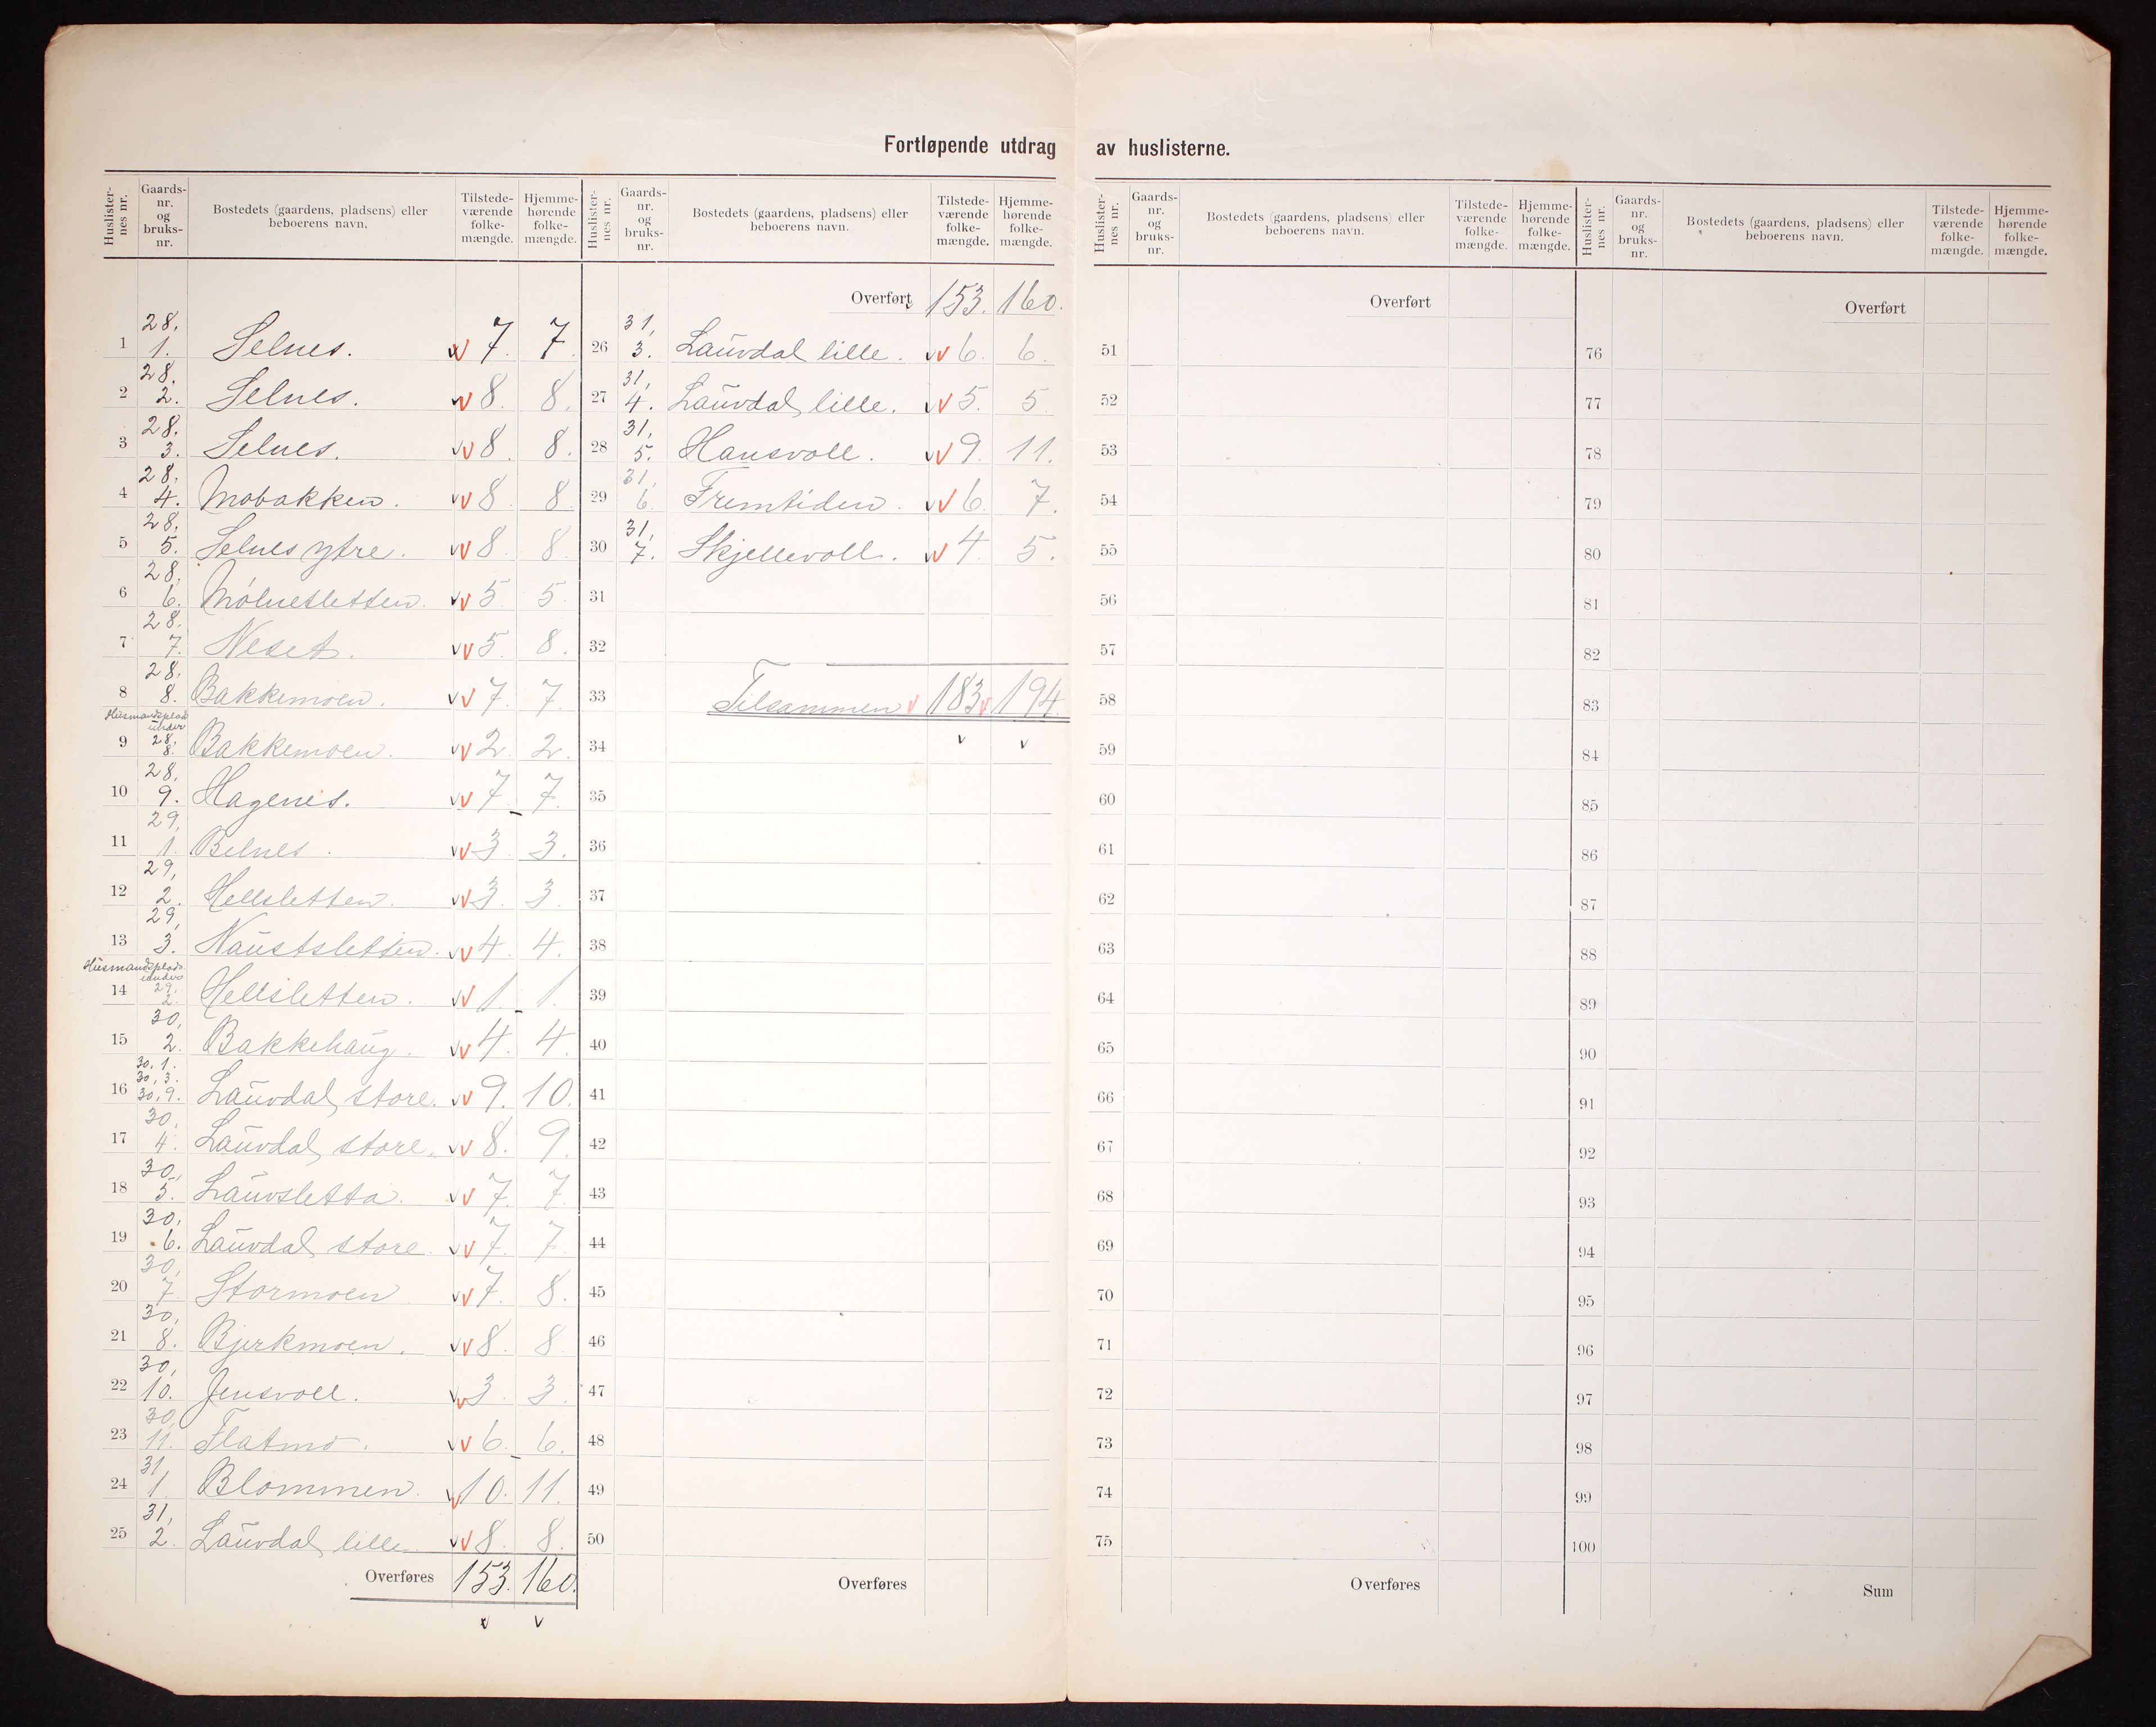 Fortløpende utdrag av huslisterne.
Huslisternes nr. Gaards-nr. og bruks-nr. Bostedets (gaardens, pladsens) eller beboerens navn. Tilstede-værende folke-mængde. Hjemme-hørende folke-mængde.
1 28, 1. Selnes. 7. 7.
2 28. 2. Selnes. 8. 8.
3 28. 3. Selnes. 8. 8.
4 28. 4. Mobakken. 8 8
5 28. 5. Selnes ytre. 8. 8
6 28, 6. Mølnesletten. 5 5.
7 28. 7. Neset. 5. 8.
8 28. 8. Bakkemoen. 7. 7.
Husmandsplads under
9 28, 8. Bakkemoen. 2. 2.
10 28, 9. Hagenes. 7. 7.
11 29, 1. Belnes. 3. 3.
12 29, 2. Hellsletten. 3. 3.
13 29, 3. Naustsletten. 4. 4.
Husmandsplads under
14 29, 2. Hellsletten. 1. 1.
15 30, 2. Bakkehaug. 4. 4.
16 30, 1. 30, 3. 30, 9. Lauvdal, store. 9. 10.
17 30, 4. Lauvdal, store. 8. 9.
18 30, 5. Lauvsletta. 7. 7.
19 30, 6. Lauvdal, store. 7. 7.
20 30, 7 Stormoen 7. 8.
21 30, 8. Bjerkmoen. 8. 8
22 30, 10. Jensvoll. 3. 3.
23 30, 11. Flatmo. 6. 6.
24 31, 1. Blommen. 10. 11.
25 31, 2. Lauvdal, lille. 8. 8.
Overføres 153. 160.
Huslisternes nr. Gaards-nr. og bruks-nr. Bostedets (gaardens, pladsens) eller beboerens navn. Tilstede-værende folke-mængde. Hjemme-hørende folke-mængde.
Overført 153. 160.
26 31, 3. Lauvdal lille. 6. 6.
27 31, 4. Lauvdal, lille. 5. 5.
28 31, 5. Hansvoll. 9. 11.
29 31, 6. Fremtiden. 6. 7.
30 31, 7. Skjellevoll. 4. 5.
31
32
33 Tilsammen 183 194.
34
35
36
37
38
39
40
41
42
43
44
45
46
47
48
49
50
Overføres
Huslisternes nr. Gaards-nr. og bruks-nr. Bostedets (gaardens, pladsens) eller beboerens navn. Tilstede-værende folke-mængde. Hjemme-hørende folke-mængde.
Overført
51
52
53
54
55
56
57
58
59
60
61
62
63
64
65
66
67
68
69
70
71
72
73
74
75
Overføres
Huslisternes nr. Gaards-nr. og bruks-nr. Bostedets (gaardens, pladsens) eller beboerens navn. Tilstede-værende folke-mængde. Hjemme-hørende folke-mængde.
Overført
76
77
78
79
80
81
82
83
84
85
86
87
88
89
90
91
92
93
94
95
96
97
98
99
100
Sum